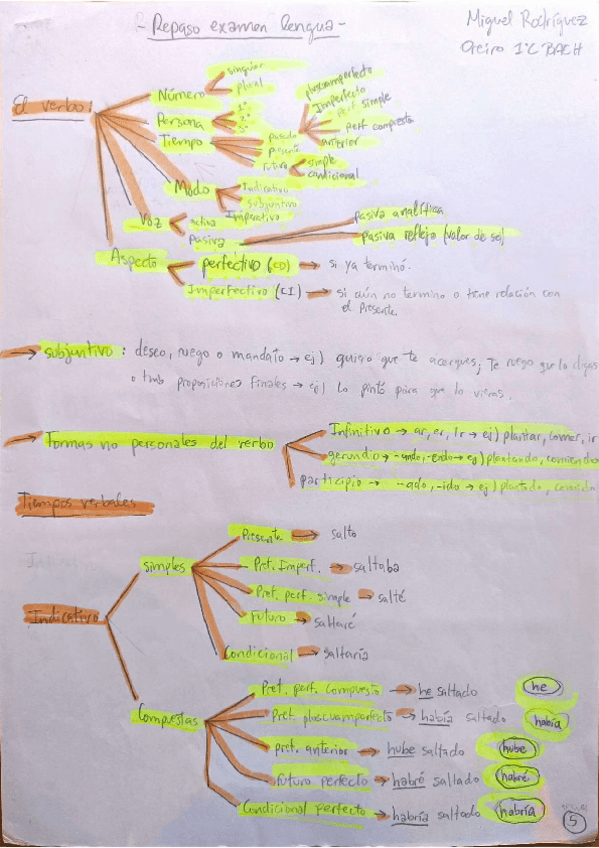 - Repaso examen lengua -
Miguel Rodríguez
Oteiro 1ºC BACH
El verbo:
Número
singular
plural
Persona
1ª
2ª
3ª
Tiempo
pasado
pluscuamperfecto
Imperfecto
perf. simple
perf. compuesto
anterior
presente
futuro
simple
condicional
Modo
Indicativo
subjuntivo
Imperativo
Voz
activa
Pasiva
pasiva analítica
pasiva refleja (valor de se)
Aspecto
perfectivo (CD) → si ya terminó.
Imperfectivo (CI) → si aún no termino o tiene relación con
el Presente
→ subjuntivo: deseo, ruego o mandato → ej) quiero que te acerques; Te ruego que lo digas
o tmb proposiciones finales → ej) Lo pintó para que lo vieras.
→ Formas no personales del verbo
Infinitivo → ar, er, ir → ej) plantar, comer, ir
gerundio → -ando, -endo → ej) plantando, comiendo
participio → -ado, -ido → ej) plantado, comido
Tiempos verbales
Indicativo
simples
Presente → salto
Pret. Imperf. → saltaba
Pret. perf. simple → salté
Futuro → saltaré
Condicional → saltaría
Compuestas
Pret. perf. Compuesto → he saltado he
Pret. pluscuamperfecto → había saltado había
pret. anterior → hube saltado hube
futuro perfecto → habré saltado habré
Condicional perfecto → habría saltado habría
5